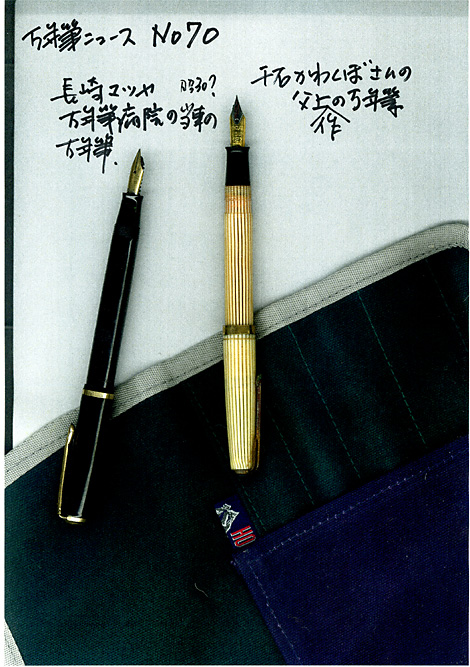 万年筆ニュース No70
長崎マツヤ 昭30?
万年筆病院の当軍の
万年筆.
千石かわくぼさんの
父上の万年筆
作
HO